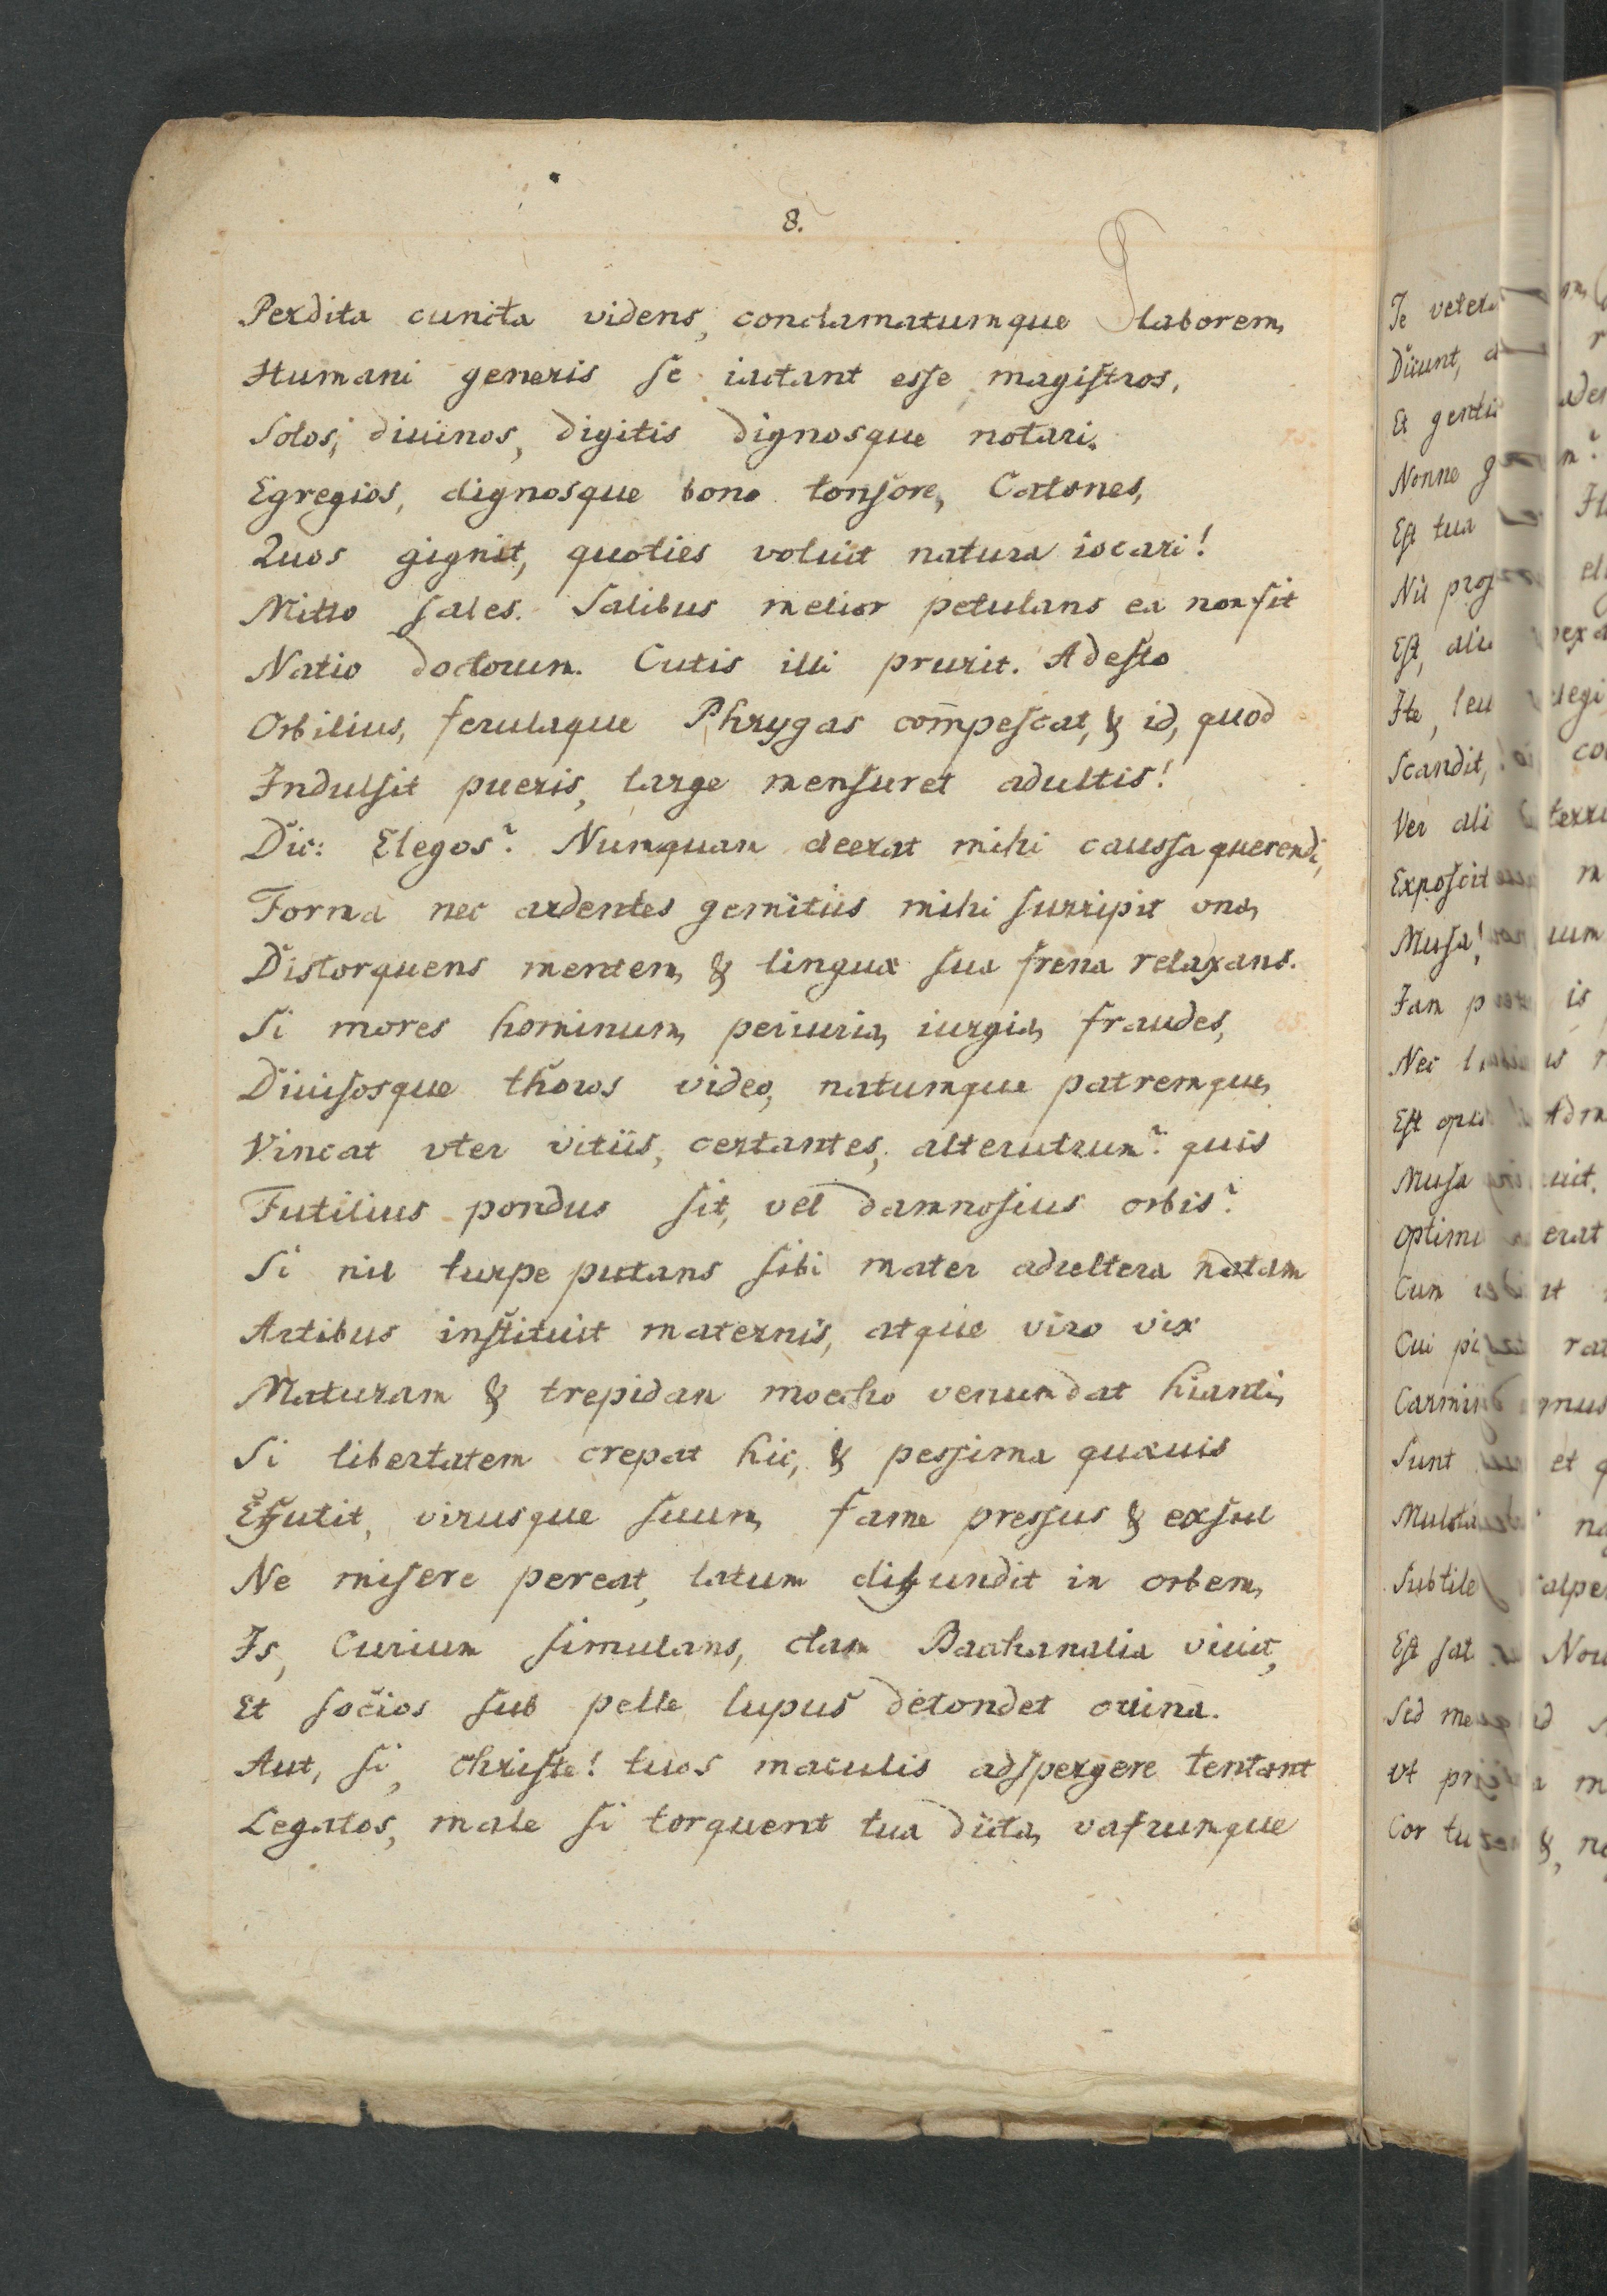 8.
Perdita cuncta videns, conclamatumque laborem,
Humani generis se iactant esse magistros,
Solos, diuinos, digitis dignosque notari.
Egregios, dignosque bono tonsore, Catones,
Quos gignit, quoties voluit natura iocari!
Mitto sales. Salibus melior petulans ea non fit
Natio doctorum. Cutis illi prurit. Adesto
Orbilius, ferulaque Phrygas compescat, & id, quod
Indulsit pueris, large mensuret adultis!
Dic: Elegos? Nunquam deerat mihi caussa querendi,
Forma nec ardentes gemitus mihi surripit una,
Distorquens mentem, & linguæ sua frena relaxans.
Si mores hominum, periuria, iurgia, fraudes,
Diuisosque thoros video, natumque patremque,
Vincat vter vitiis, certantes, alterutrum? quis
Futilius pondus sit, vel damnosius orbis?
Si nil turpe putans sibi mater adultera natam
Artibus instituit maternis, atque viro vix
Maturam & trepidam moecho venumdat hianti,
Si libertatem crepat hic, & pessima quæuis
Effutit, virusque suum, fame pressus & exsul
Ne misere pereat, latum diffundit in orbem,
Is, Curium simulans, clam Bacchanalia viuit,
Et socios sub pelle lupus detondet ouina.
Aut, si, Christe! tuos maculis adspergere tentant
Legatos, male si torquent tua dicta, vafrumque
Te
Dicunt,
Et
Nonne
Est tua
Nil
Est,
Ite,
Scandit,
Ver
Exposcit
Musa!
Iam
Nec
Est
Musa
Cum
Cui
Sunt et
Est sat
Sed
vt
Cor